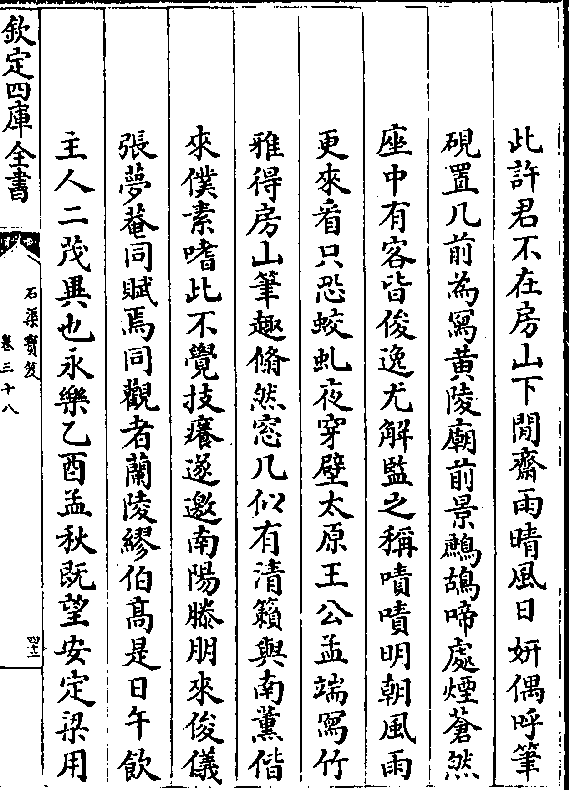 此許君不在房山下閒齋雨晴風日妍偶呼筆
硯置几前為寫黄陵廟前景鷓鴣啼處煙蒼然
座中有客皆俊逸尤解監之稱嘖嘖明朝風雨
更來看只恐蛟虬夜穿壁太原王公孟端寫竹
雅得房山筆趣翛然窓几似有清籟與南薰偕
來僕素嗜此不覺技癢遂邀南陽滕朋來俊儀
張夢菴同賦焉同觀者蘭陵繆伯髙是日午飲
主人二茂異也永樂乙酉孟秋既望安定梁用
欽定四庫全書
石渠寳笈
卷三十八